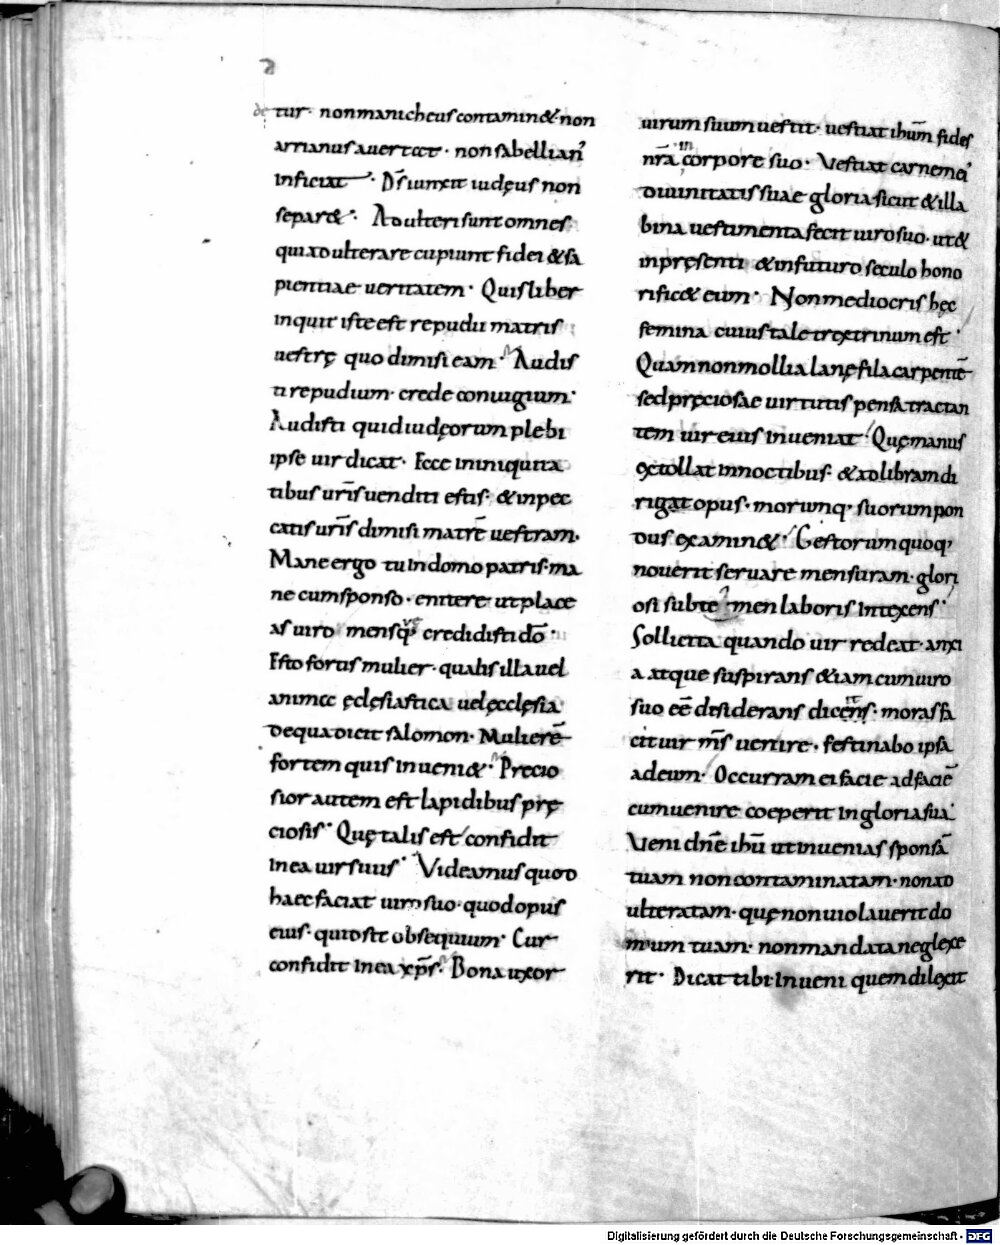 detur· non manicheus contamin&· non
arrianus auertat· non sabellian᾽
inficiat· D̄s iunxit iudęus non
separ&· Adulteri sunt omnes
qui adulterare cupiunt fidei & sa
pientiae ueritatem· Quis liber
inquit iste est repudii matris
uestrę quo dimisi eam· Audis
ti repudium· crede coniugium·
Audisti quid iudęorum plebi
ipse uir dicat· Ecce in iniquita
tibus ur̄is uenditi estis· & in pec
catis ur̄is dimisi matrē uestram·
Mane ergo tu in domo patris· ma
ne cum sponso· enitere ut place
as uiro credidisti dō·
Esto fortis mulier· qualis illa uel
animae ęclęsiastica uel ęcclęsia
de qua dicit salomon· Mulierē
fortem quis inueni&· Precio
sior autem est lapidibus prę
ciosis· Quę talis est confidit
in ea uir suus· Videamus quod
haec faciat uiro suo· quod opus
eius· quid sit obsequium· Cur
confidit in ea xp̄s· Bona uxor
uirum suum uestit· uestiat ihūm fides
nr̄a in corpore suo· Vestiat carnem ei᾽
diuinitatis suae gloria sicut & illa
bina uestimenta fecit uiro suo· ut &
in pręsenti & in futuro seculo hono
rific& eum· Non mediocris hęc
femina cuius tale textrinum est·
Quam non mollia lanę fila carpentē
sed pręciosae uirtutis pensa tractan
tem uir eius inueniat· Quę manus
extollat in noctibus· & ad libram di
rigat opus· morumq· suorum pon
dus examin&· Gestorum quoq·
nouerit seruare mensuram· glori
osi subtemen laboris intexens·
Sollicita quando uir redeat· anxi
a atque suspirans & iam cum uiro
suo eē desiderans dicens· moras fa
cit uir m̄s uenire· festinabo ipsa
ad eum· Occurram ei facie ad faciē
cum uenire coeperit in gloria sua·
Veni dn̄e ihū ut inuenias sponsā
tuam non contaminatam· non ad
ulteratam· quę non uiolauerit do
mum tuam· non mandata neglexe
rit· Dicat tibi Inueni quem dilexit
Digitalisierung gefördert durch die Deutsche Forschungsgemeinschaft - DFG